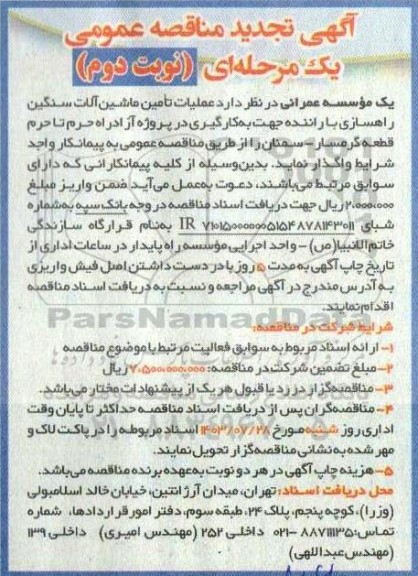 آگهی تجدید مناقصه عمومی
یک مرحله‌ای (نوبت دوم)
یک مؤسسه عمرانی در نظر دارد عملیات تأمین ماشین‌آلات سنگین
راهسازی با راننده جهت به‌کارگیری در پروژه آزادراه حرم تا حرم
قطعه گرمسار - سمنان را از طریق مناقصه عمومی به پیمانکار واجد
شرایط واگذار نماید. بدین‌وسیله از کلیه پیمانکارانی که دارای
سوابق مرتبط می‌باشند، دعوت به‌عمل می‌آید ضمن واریز مبلغ
۲.۰۰۰.۰۰۰ ریال جهت دریافت اسناد مناقصه در وجه بانک سپه به‌شماره
شبای IR ۷۱۰۱۵۰۰۰۰۰۰۵۱۵۴۸۷۸۱۴۳۰۱۱ به‌نام قرارگاه سازندگی
خاتم‌الانبیا(ص) - واحد اجرایی مؤسسه راه پایدار در ساعات اداری از
تاریخ چاپ آگهی به مدت ۵ روز با در دست داشتن اصل فیش واریزی
به آدرس مندرج در آگهی مراجعه و نسبت به دریافت اسناد مناقصه
اقدام نمایند.
ParsNamadData
شرایط شرکت در مناقصه:
۱- ارائه اسناد مربوط به سوابق فعالیت مرتبط با موضوع مناقصه
۲- مبلغ تضمین شرکت در مناقصه: ۷.۵۰۰.۰۰۰.۰۰۰ ریال
۳- مناقصه‌گزار در رد یا قبول هر یک از پیشنهادات مختار می‌باشد.
۴- مناقصه‌گران پس از دریافت اسناد مناقصه حداکثر تا پایان وقت
اداری روز شنبه مورخ ۱۴۰۳/۰۷/۲۸ اسناد مربوطه را در پاکت لاک و
مهر شده به نشانی مناقصه‌گزار تحویل نمایند.
۵- هزینه چاپ آگهی در هر دو نوبت به‌عهده برنده مناقصه می‌باشد.
محل دریافت اسناد: تهران، میدان آرژانتین، خیابان خالد اسلامبولی
(وزرا)، کوچه پنجم، پلاک ۲۴، طبقه سوم، دفتر امور قراردادها، شماره
تماس: ۸۸۷۱۱۱۳۵-۰۲۱ داخلی ۲۵۲ (مهندس امیری) داخلی ۱۳۹
(مهندس عبداللهی)